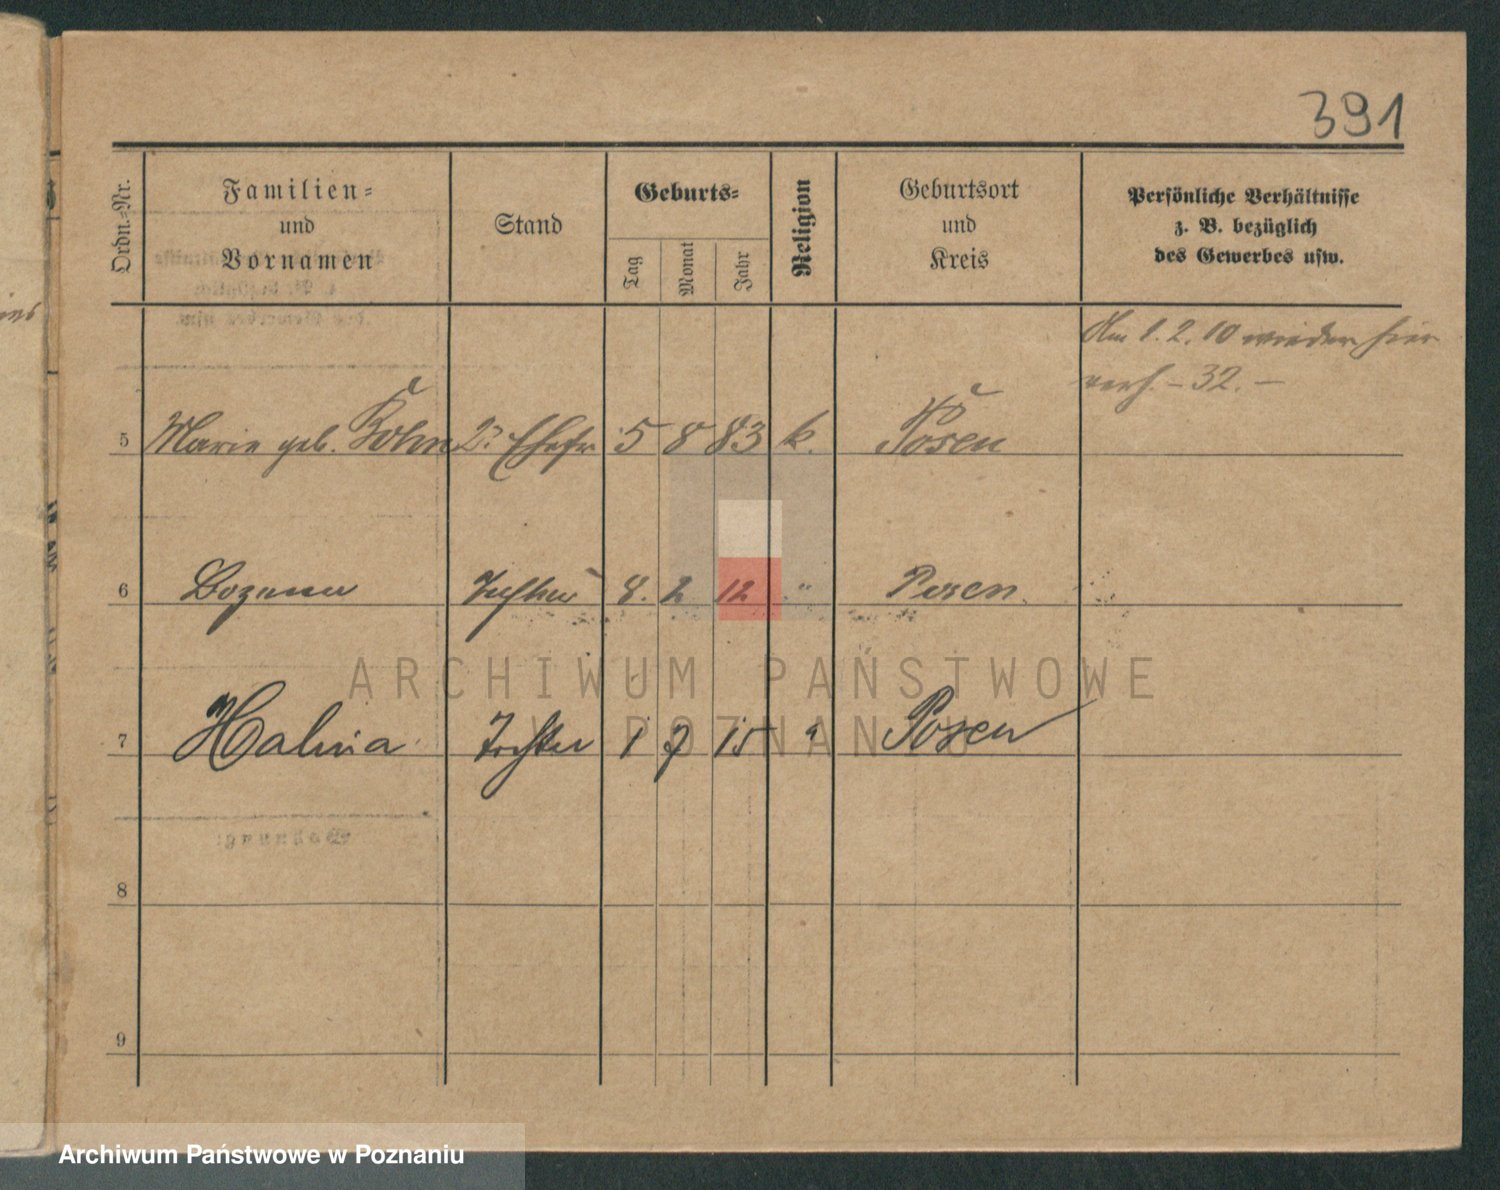 391
Ordn.=Nr.
Familien=
und
Vornamen
Stand
Geburts=
Tag
Monat
Jahr
Religion
Geburtsort
und
Kreis
Persönliche Verhältnisse
z. B. bezüglich
des Gewerbes usw.
Am 1. 2. 10 wieder hier
verh. – 32. –
5 Marie geb. 2. Ehefr 5 8 83 k. Posen
6 Bozena Tochter 8. 2 12 " Posen
7 Halina Tochter 1 7 15 " Posen
8
9
ARCHIWUM PAŃSTWOWE
W POZNANIU
Archiwum Państwowe w Poznaniu